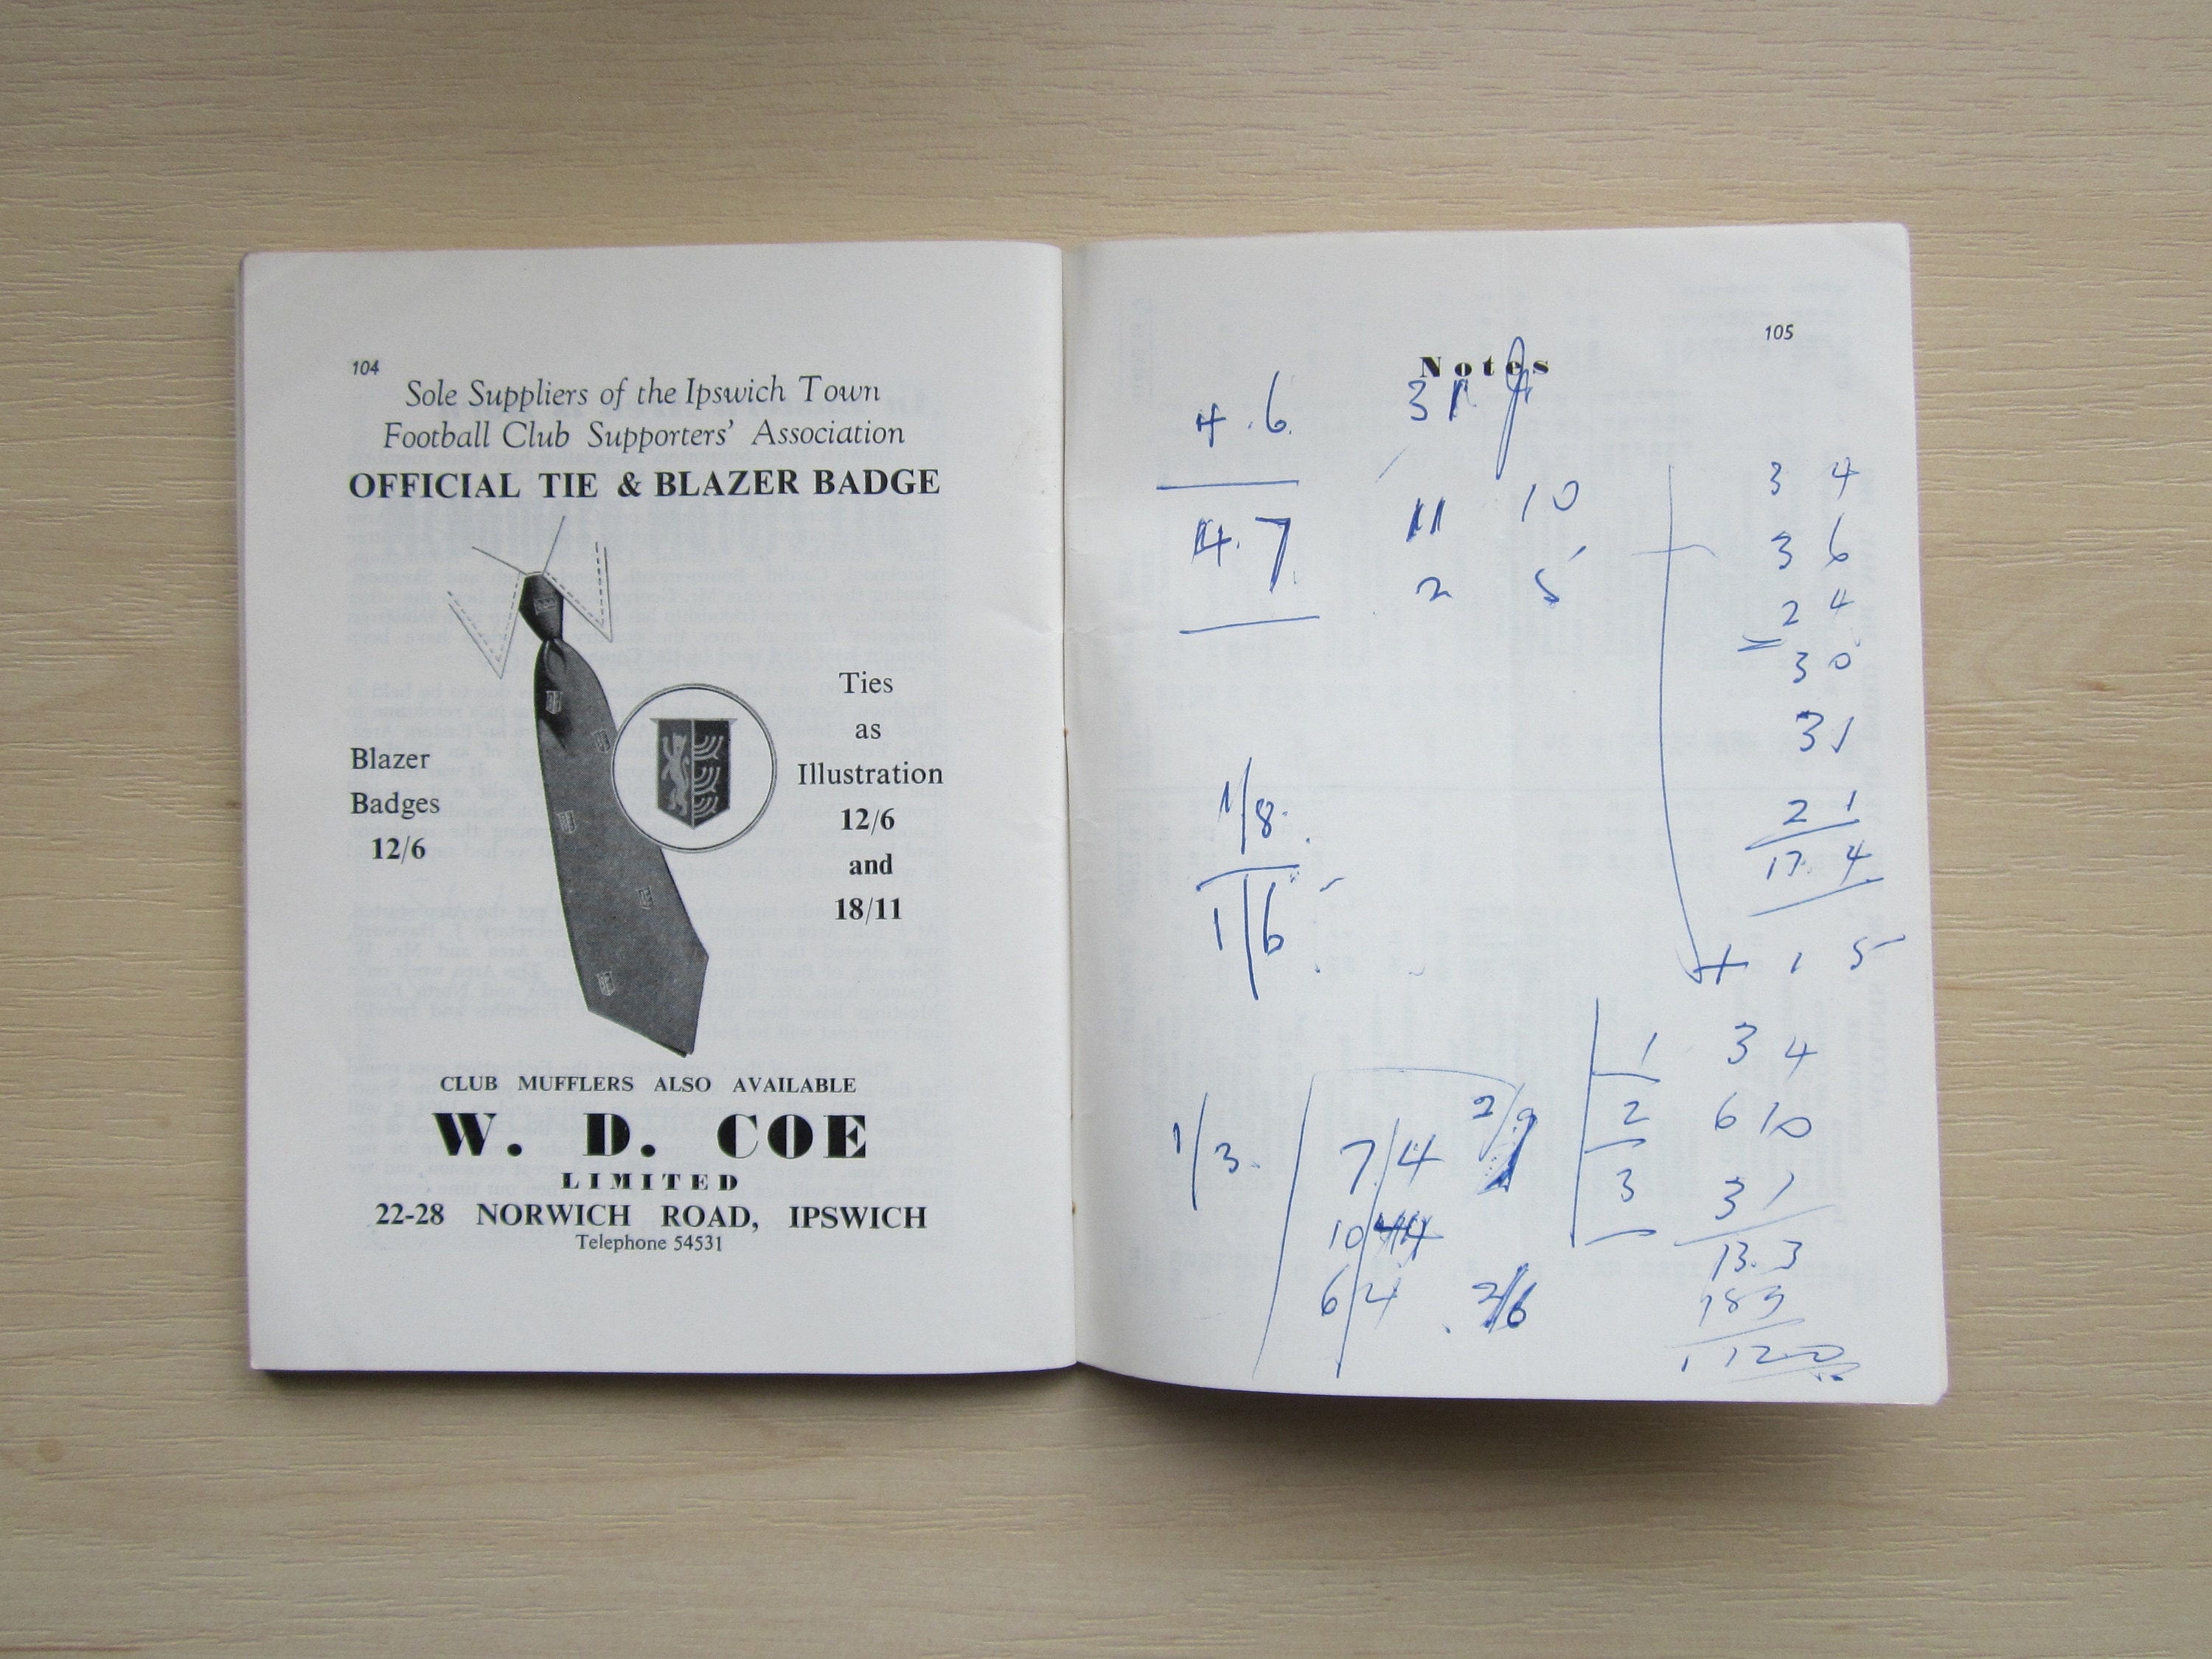 104
Sole Suppliers of the Ipswich Town
Football Club Supporters' Association
OFFICIAL TIE & BLAZER BADGE
Blazer
Badges
12/6
Ties
as
Illustration
12/6
and
18/11
CLUB MUFFLERS ALSO AVAILABLE
W. D. COE
LIMITED
22-28 NORWICH ROAD, IPSWICH
Telephone 54531
105
Notes
4.6.
4.7.
31
11 10
2 5
1/8.
1/6
1/3.
7/4 2/9
10
6/4 2/6
3 4
3 6
2 4
3 0
3 1
2 1
17.4
+ 1 5
1 3 4
2 6 10
3 3 1
13.3
18 9
1 12 0